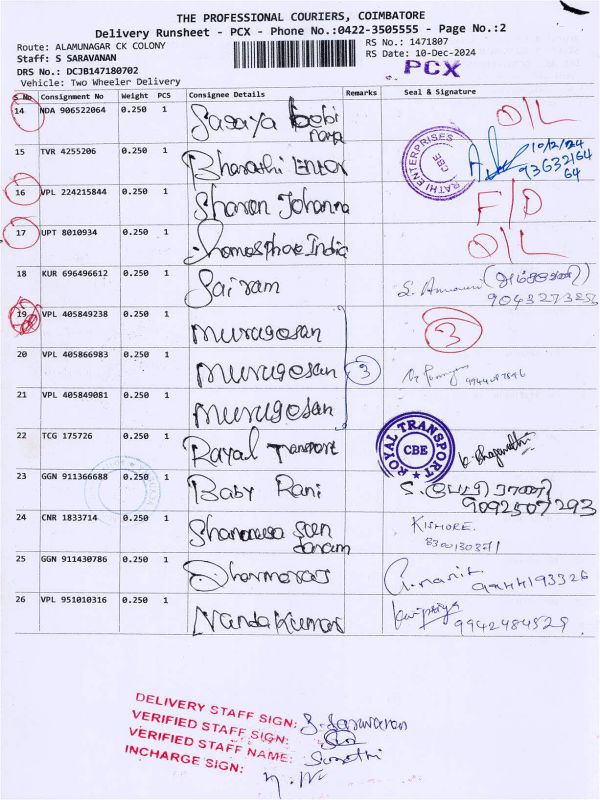 THE PROFESSIONAL COURIERS, COIMBATORE
Delivery Runsheet - PCX - Phone No.:0422-3505555 - Page No.:2
Route: ALAMUNAGAR CK COLONY
RS No.: 1471807
Staff: S SARAVANAN
RS Date: 10-Dec-2024
DRS No.: DCJB147180702
PCX
Vehicle: Two Wheeler Delivery
S No Consignment No Weight PCS Consignee Details Remarks Seal & Signature
14 NDA 906522064 0.250 1 O/L
15 TVR 4255206 0.250 1 Bharathi RATHI ENTERPRISES CBE 10/12/24
9363216464
16 VPL 224215844 0.250 1 Sharon Johanna F/D
17 UPT 8010934 0.250 1 India O/L
18 KUR 696496612 0.250 1 Sairam
19 VPL 405849238 0.250 1 murugosan 3
20 VPL 405866983 0.250 1 murugosan 3
21 VPL 405849081 0.250 1 murugosan
22 TCG 175726 0.250 1 Rayal Transport ROYAL TRANSPORT CBE
23 GGN 911366688 0.250 1 Baby Rani
9092507293
24 CNR 1833714 0.250 1 KISHORE
25 GGN 911430786 0.250 1 9944193326
26 VPL 951010316 0.250 1 Nanda Kumar 9942484529
DELIVERY STAFF SIGN: S. Saravanan
VERIFIED STAFF SIGN:
VERIFIED STAFF NAME: Sumathi
INCHARGE SIGN: